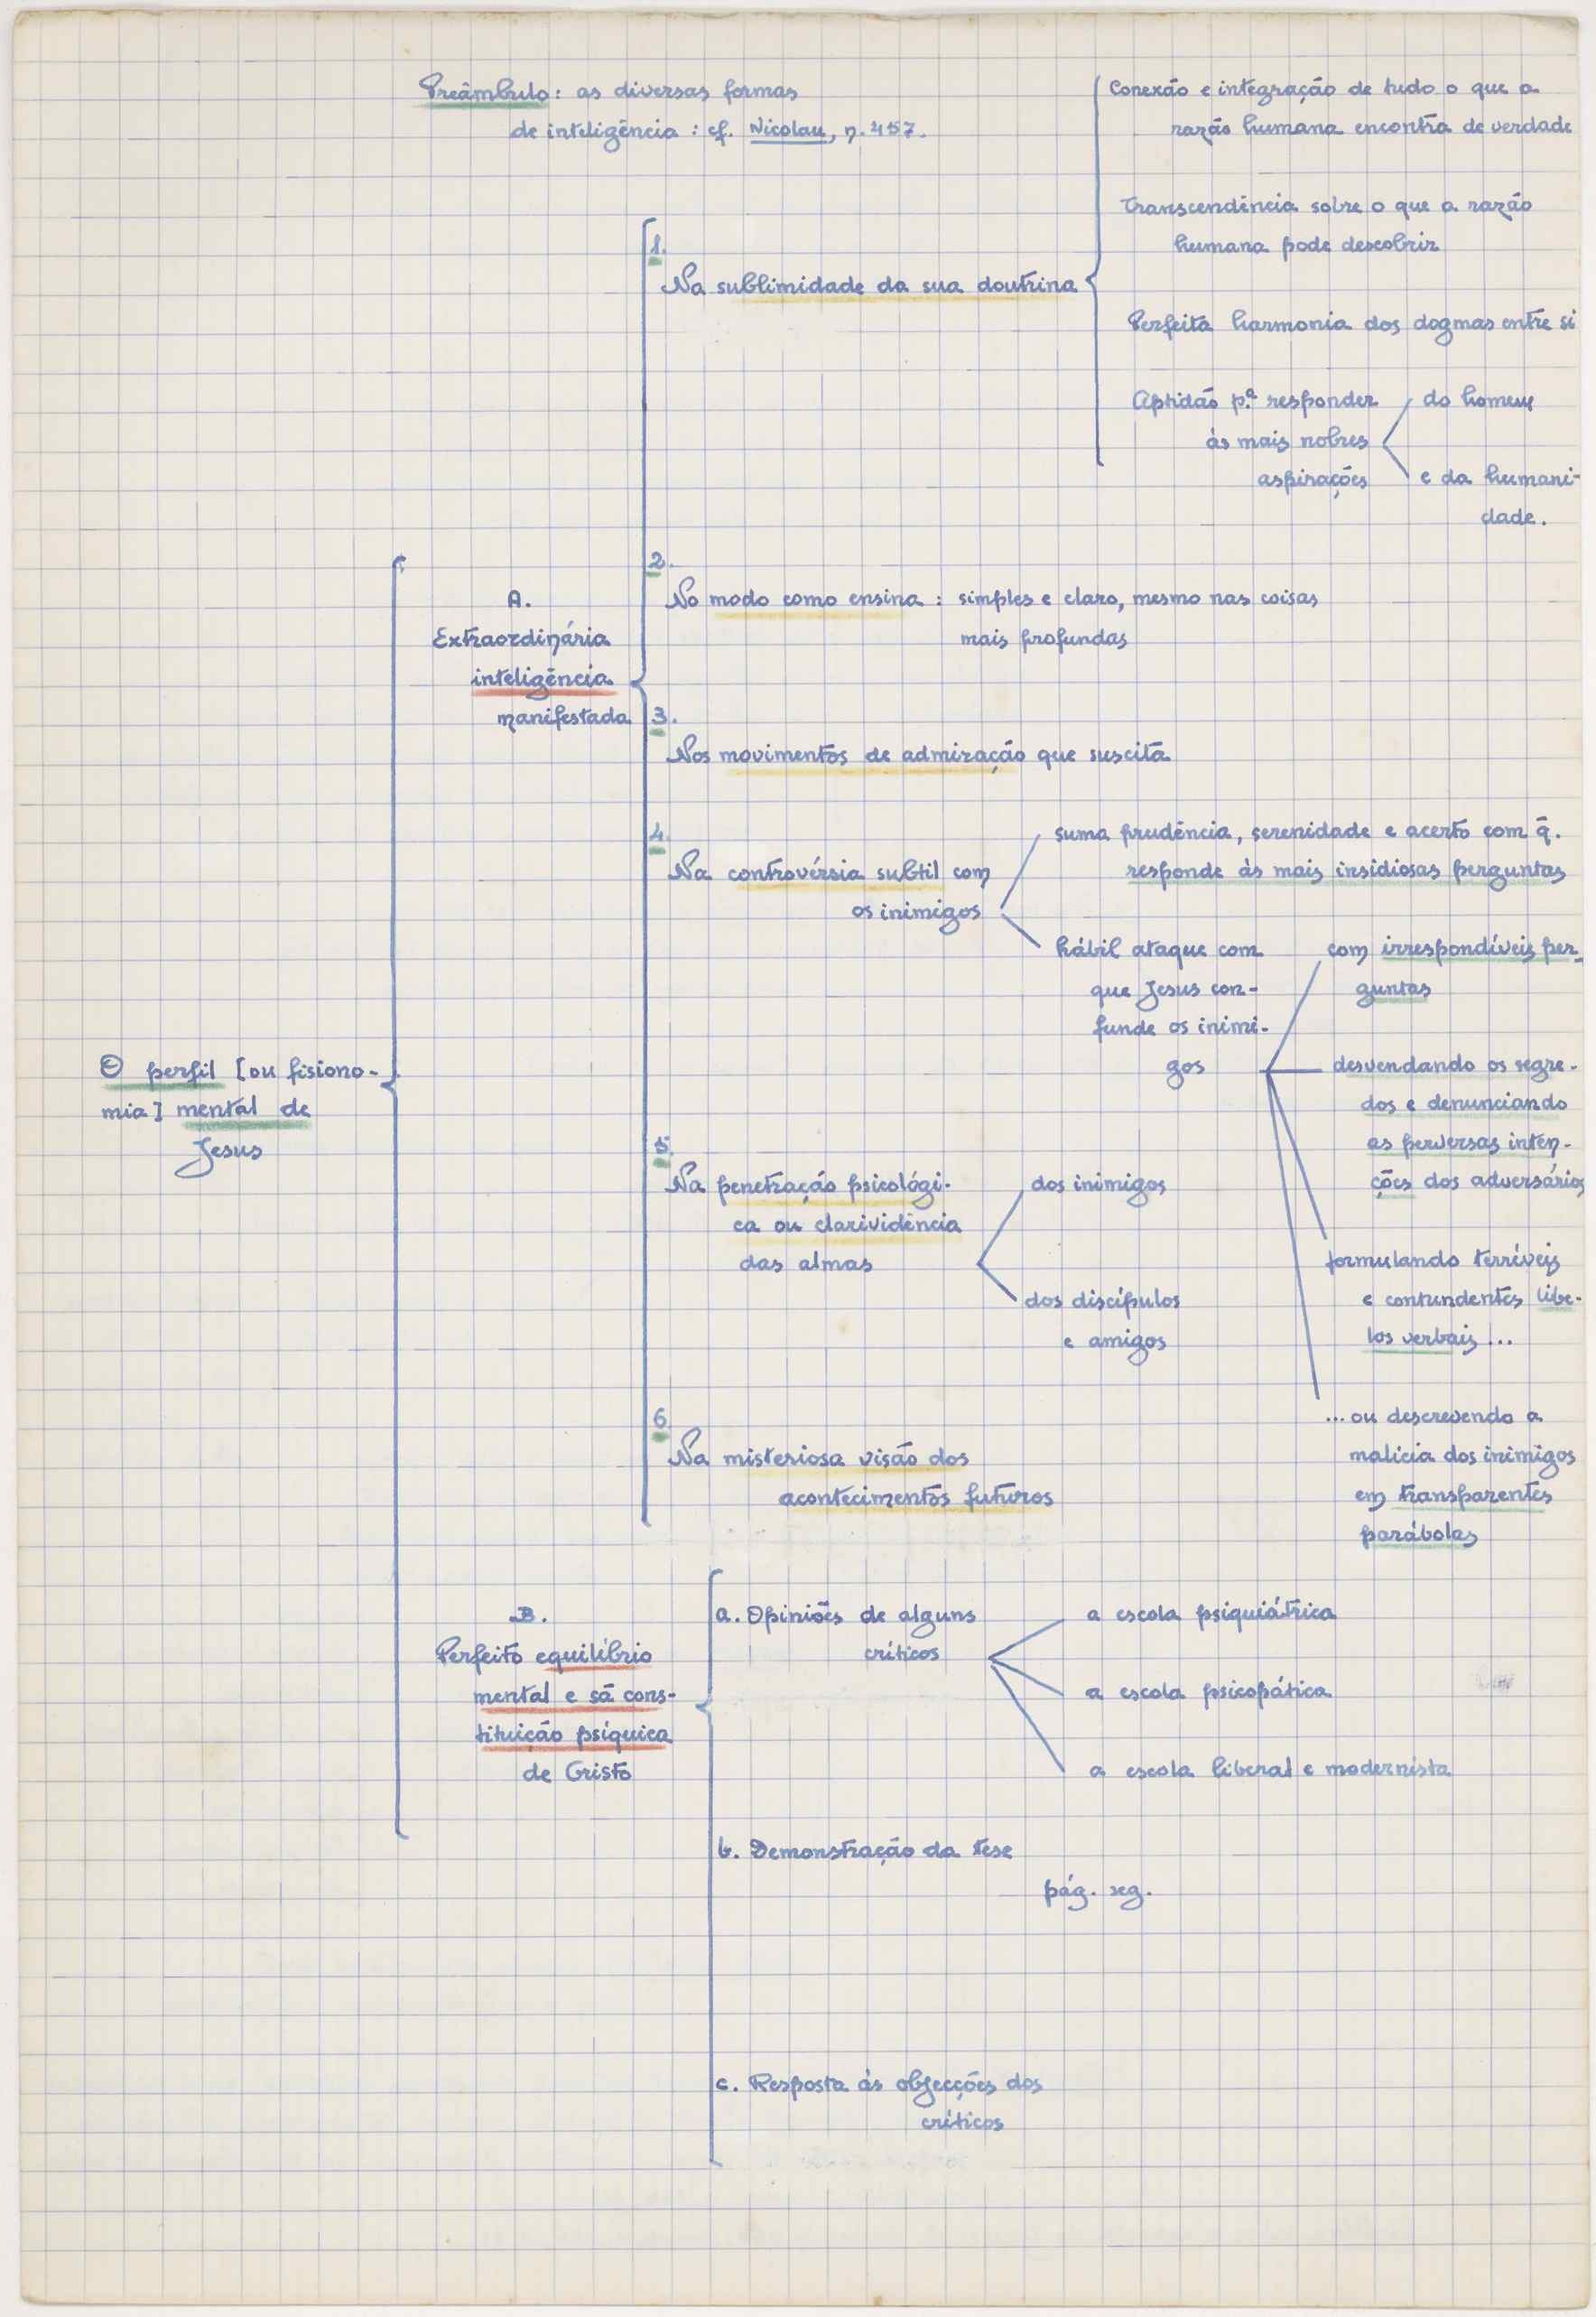 Preâmbulo: as diversas formas
de inteligência : cf. Nicolau, n. 457.
O perfil [ou fisiono-
mia] mental de
Jesus
A.
Extraordinária
inteligência
manifestada
1.
Na sublimidade da sua doutrina
Conexão e integração de tudo o que a
razão humana encontra de verdade
Transcendência sobre o que a razão
humana pode descobrir
Perfeita harmonia dos dogmas entre si
Aptidão p.ª responder
às mais nobres
aspirações
do homem
e da humani-
dade.
2.
No modo como ensina : simples e claro, mesmo nas coisas
mais profundas
3.
Nos movimentos de admiração que suscita
4.
Na controvérsia subtil com
os inimigos
suma prudência, serenidade e acerto com q̃.
responde às mais insidiosas perguntas
hábil ataque com
que Jesus con-
funde os inimi-
gos
com irrespondíveis per-
guntas
desvendando os segre-
dos e denunciando
as perversas inten-
ções dos adversários
formulando terríveis
e contundentes libe-
los verbais ...
... ou descrevendo a
malícia dos inimigos
em transparentes
parábolas
5.
Na penetração psicológi-
ca ou clarividência
das almas
dos inimigos
dos discípulos
e amigos
6.
Na misteriosa visão dos
acontecimentos futuros
B.
Perfeito equilíbrio
mental e sã cons-
tituição psíquica
de Cristo
a. Opiniões de alguns
críticos
a escola psiquiátrica
a escola psicopática
a escola liberal e modernista
b. Demonstração da tese
pág. seg.
c. Resposta às objecções dos
críticos